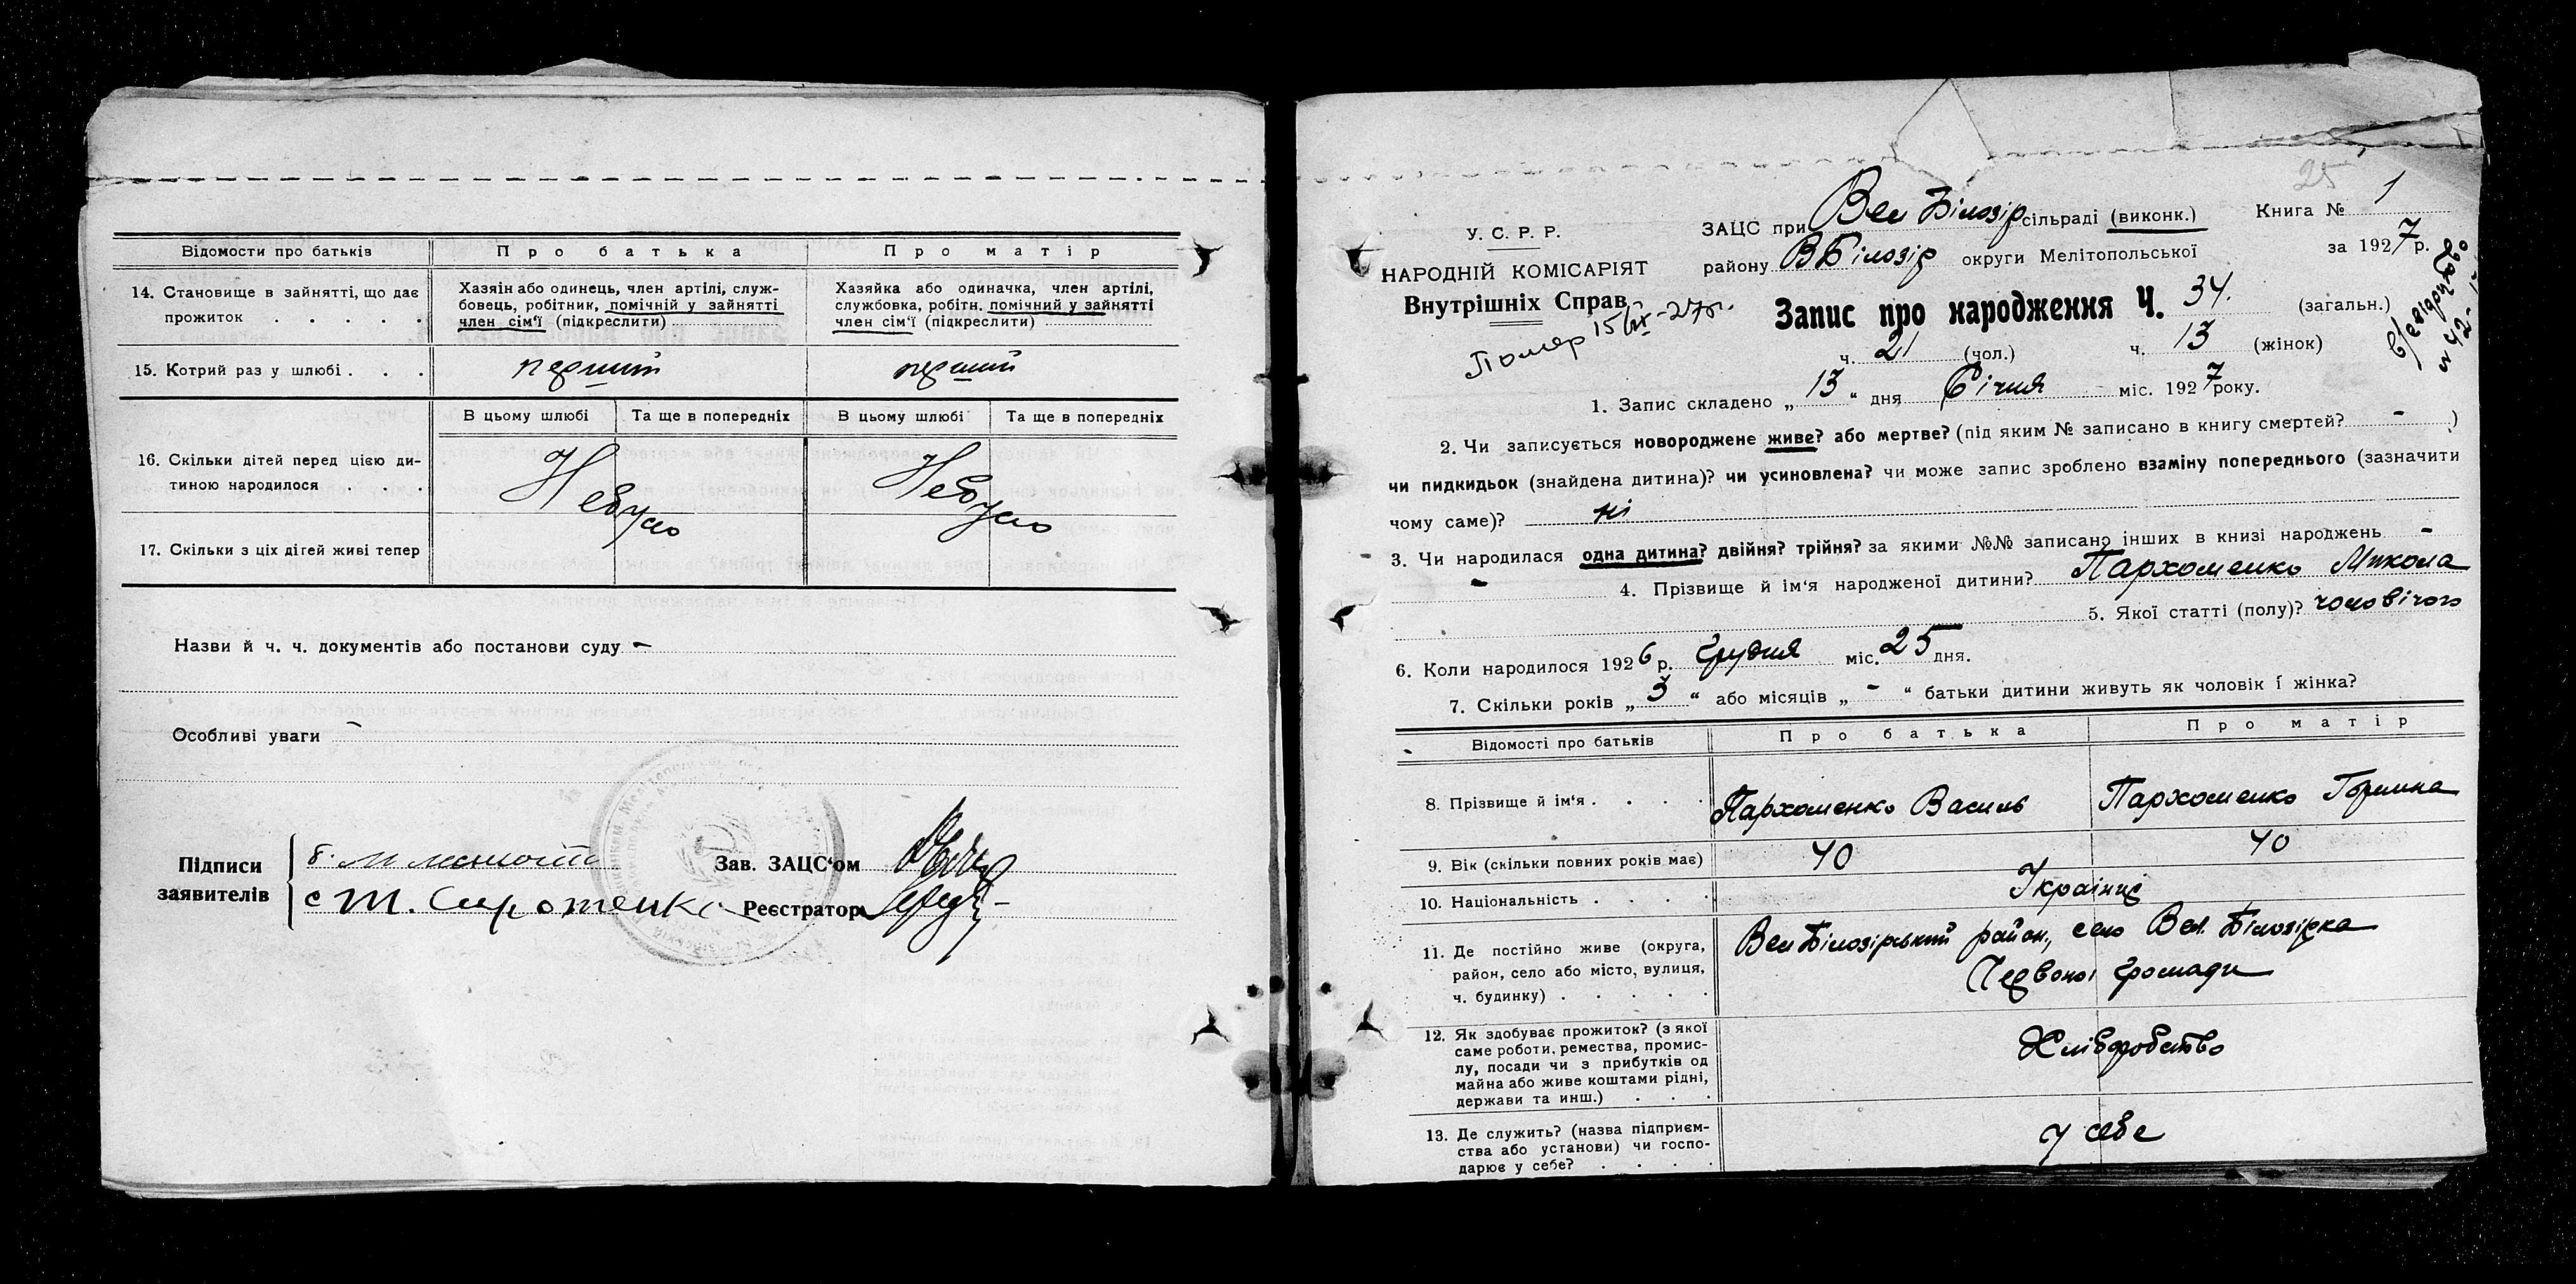 Відомости про батьків
Про батька
Про матір
14. Становище в зайнятті, що дає прожиток . . . . .
Хазяін або одинець, член артілі, служ-
бовець, робітник, помічній у зайнятті
член сім'ї (підкреслити)
Хазяйка або одиначка, член артілі,
службовка, робітн. помічний у зайнятті
член сім'ї (підкреслити)
15. Котрий раз у шлюбі . . .
перший
перший
В цьому шлюбі
Та ще в попередніх
В цьому шлюбі
Та ще в попередніх
16. Скільки дітей перед цією ди-
тиною народилося . . .
Небуло
Небуло
17. Скільки з ціх дітей живі тепер
Назви й ч. ч. документів або постанови суду -
Особливі уваги -
Підписи
заявителів
Зав. ЗАЦС'ом
с Т. Сиротенко
Реєстратор
25
У. С. Р. Р.
НАРОДНІЙ КОМІСАРІЯТ
Внутрішніх Справ
Помер 15/IX-27р.
ЗАЦС при Вел Білозір сільраді (виконк.)
Книга № 1
району ВБілозір округи Мелітопольської
за 1927 р.
Запис про народження Ч. 34. (загальн.)
ч. 21 (чол.)
ч. 13 (жінок)
1. Запис складено „ 13 " дня Січня міс. 1927 року.
2. Чи записується новороджене живе? або мертве? (під яким № записано в книгу смертей? - )
чи пидкидьок (знайдена дитина)? чи усиновлена? чи може запис зроблено взаміну попереднього (зазначити
чому саме)? ні
3. Чи народилася одна дитина? двійня? трійня? за якими №№ записано інших в книзі народжень -
- 4. Прізвище й ім'я народженої дитини? Пархоменко Микола
5. Якої статті (полу)? чоловічого
6. Коли народилося 1926 р. Грудня міс. 25 дня.
7. Скільки років „ 3 " або місяців „ - " батьки дитини живуть як чоловік і жінка?
Відомості про батьків
Про батька
Про матір
8. Прізвище й ім'я . . . .
Пархоменко Василь
Пархоменко Горпина
9. Вік (скільки повних років має)
40
40
10. Національність . . . .
Українці
11. Де постійно живе (округа,
район, село або місто, вулиця,
ч. будинку) . . . . .
Вел Білозірський район., село Вел. Білозірка
Червоної громади
12. Як здобуває прожиток? (з якої
саме роботи, ремества, промис-
лу, посади чи з прибутків од
майна або живе коштами рідні,
держави та инш.) . . .
Хліборобство
13. Де служить? (назва підприєм-
ства або установи) чи госпо-
дарює у себе? . . . .
у себе